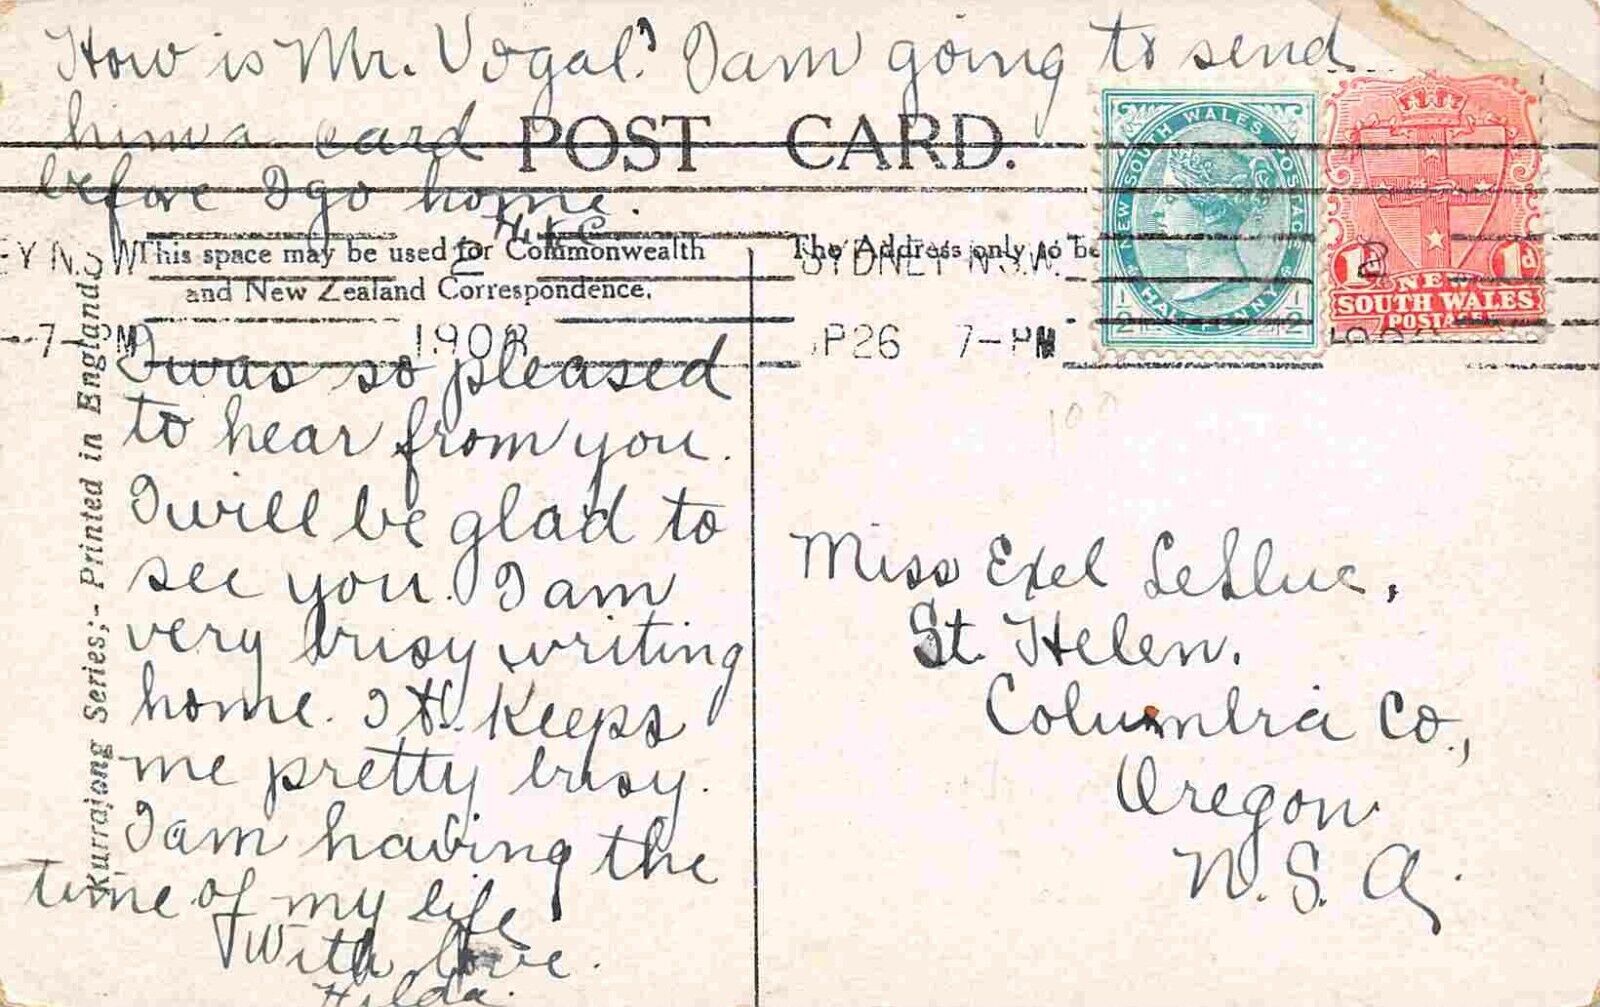 How is Mr. Vogal? I am going to send
him a card
before I go home.
H.
POST CARD.
This space may be used for Commonwealth
and New Zealand Correspondence.
The Address only to be
Y N.S.W
SYDNEY N.S.W.
7-PM
1908
P26 7-PM
NEW SOUTH WALES POSTAGE
HALF PENNY
1d
NEW
SOUTH WALES
POSTAGE
Kurrajong Series;- Printed in England.
I was so pleased
to hear from you.
I will be glad to
see you. I am
very busy writing
home. It Keeps
me pretty busy.
I am having the
time of my life
With love.
Hilda.
Miss Exel
St. Helen.
Columbia Co.,
Oregon
U.S.A.